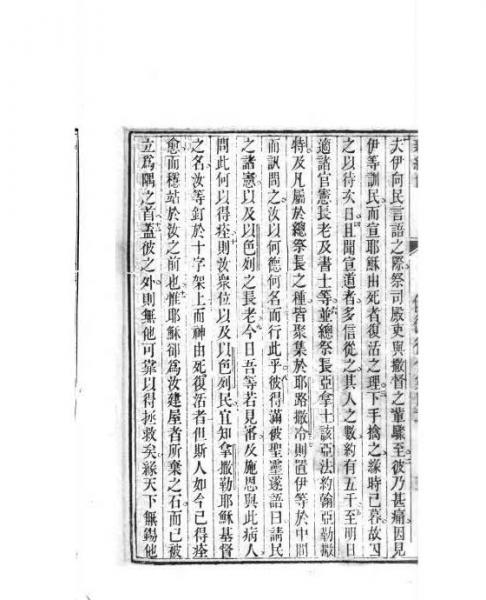 夫伊向民言語之際祭司殿吏與撒督之輩驟至彼乃甚痛因見
伊等訓民而宣耶穌由死者復活之理下手擒之緣時已暮故囚
之以待次日且聞宣道者多信從之其人之數約有五千至明日
適諸官憲長老及書士等並總祭長亞拿士該亞法約翰亞勒撒
特及凡屬於總祭長之種皆聚集於耶路撒冷則置伊等於中間
而訊問之汝以何德何名而行此乎彼得滿彼聖靈遂語曰請民
之諸憲以及以色列之長老今日吾等若見審及施恩與此病人
問此何以得痊則汝眾位以及以色列民宜知拿撒勒耶穌基督
之名汝等釘於十字架上而神由死復活者但斯人如今已得痊
愈而穩站於汝之前也惟耶穌卻為汝建屋者所棄之石而已被
立為隅之首蓋彼之外則無他可靠以得拯救矣緣天下無錫他